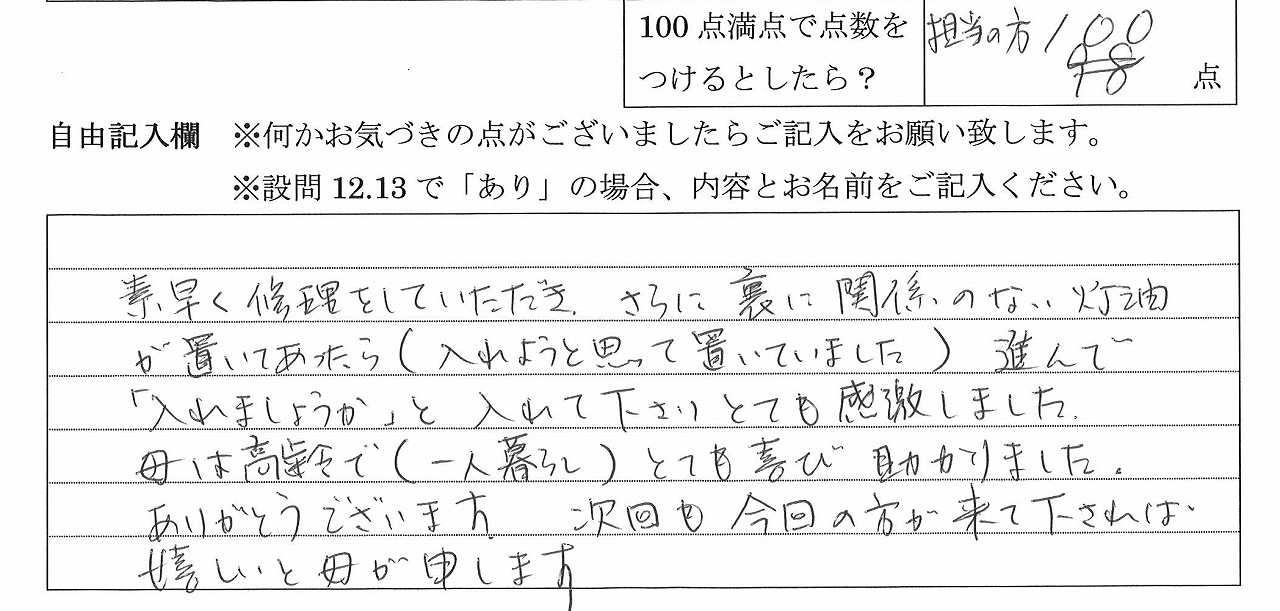 100点満点で点数を
つけるとしたら？
担当の方 100
98
点
自由記入欄 ※何かお気づきの点がございましたらご記入をお願い致します。
※設問12.13で「あり」の場合、内容とお名前をご記入ください。
素早く修理をしていただき、さらに裏に関係のない灯油
が置いてあったら(入れようと思って置いていました)進んで
「入れましょうか」と入れて下さりとても感激しました。
母は高齢で(一人暮らし)とても喜び助かりました。
ありがとうございます。次回も今回の方が来て下されば
嬉しいと母が申します